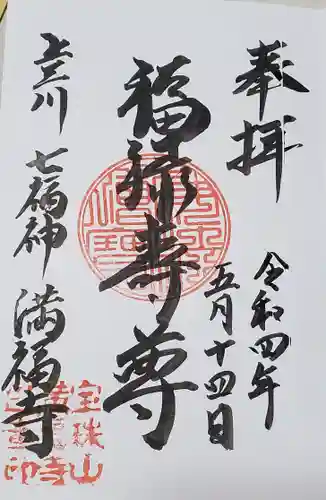 奉拝
令和四年
五月十四日
福禄寿尊
上三川七福神満福寺
宝珠山